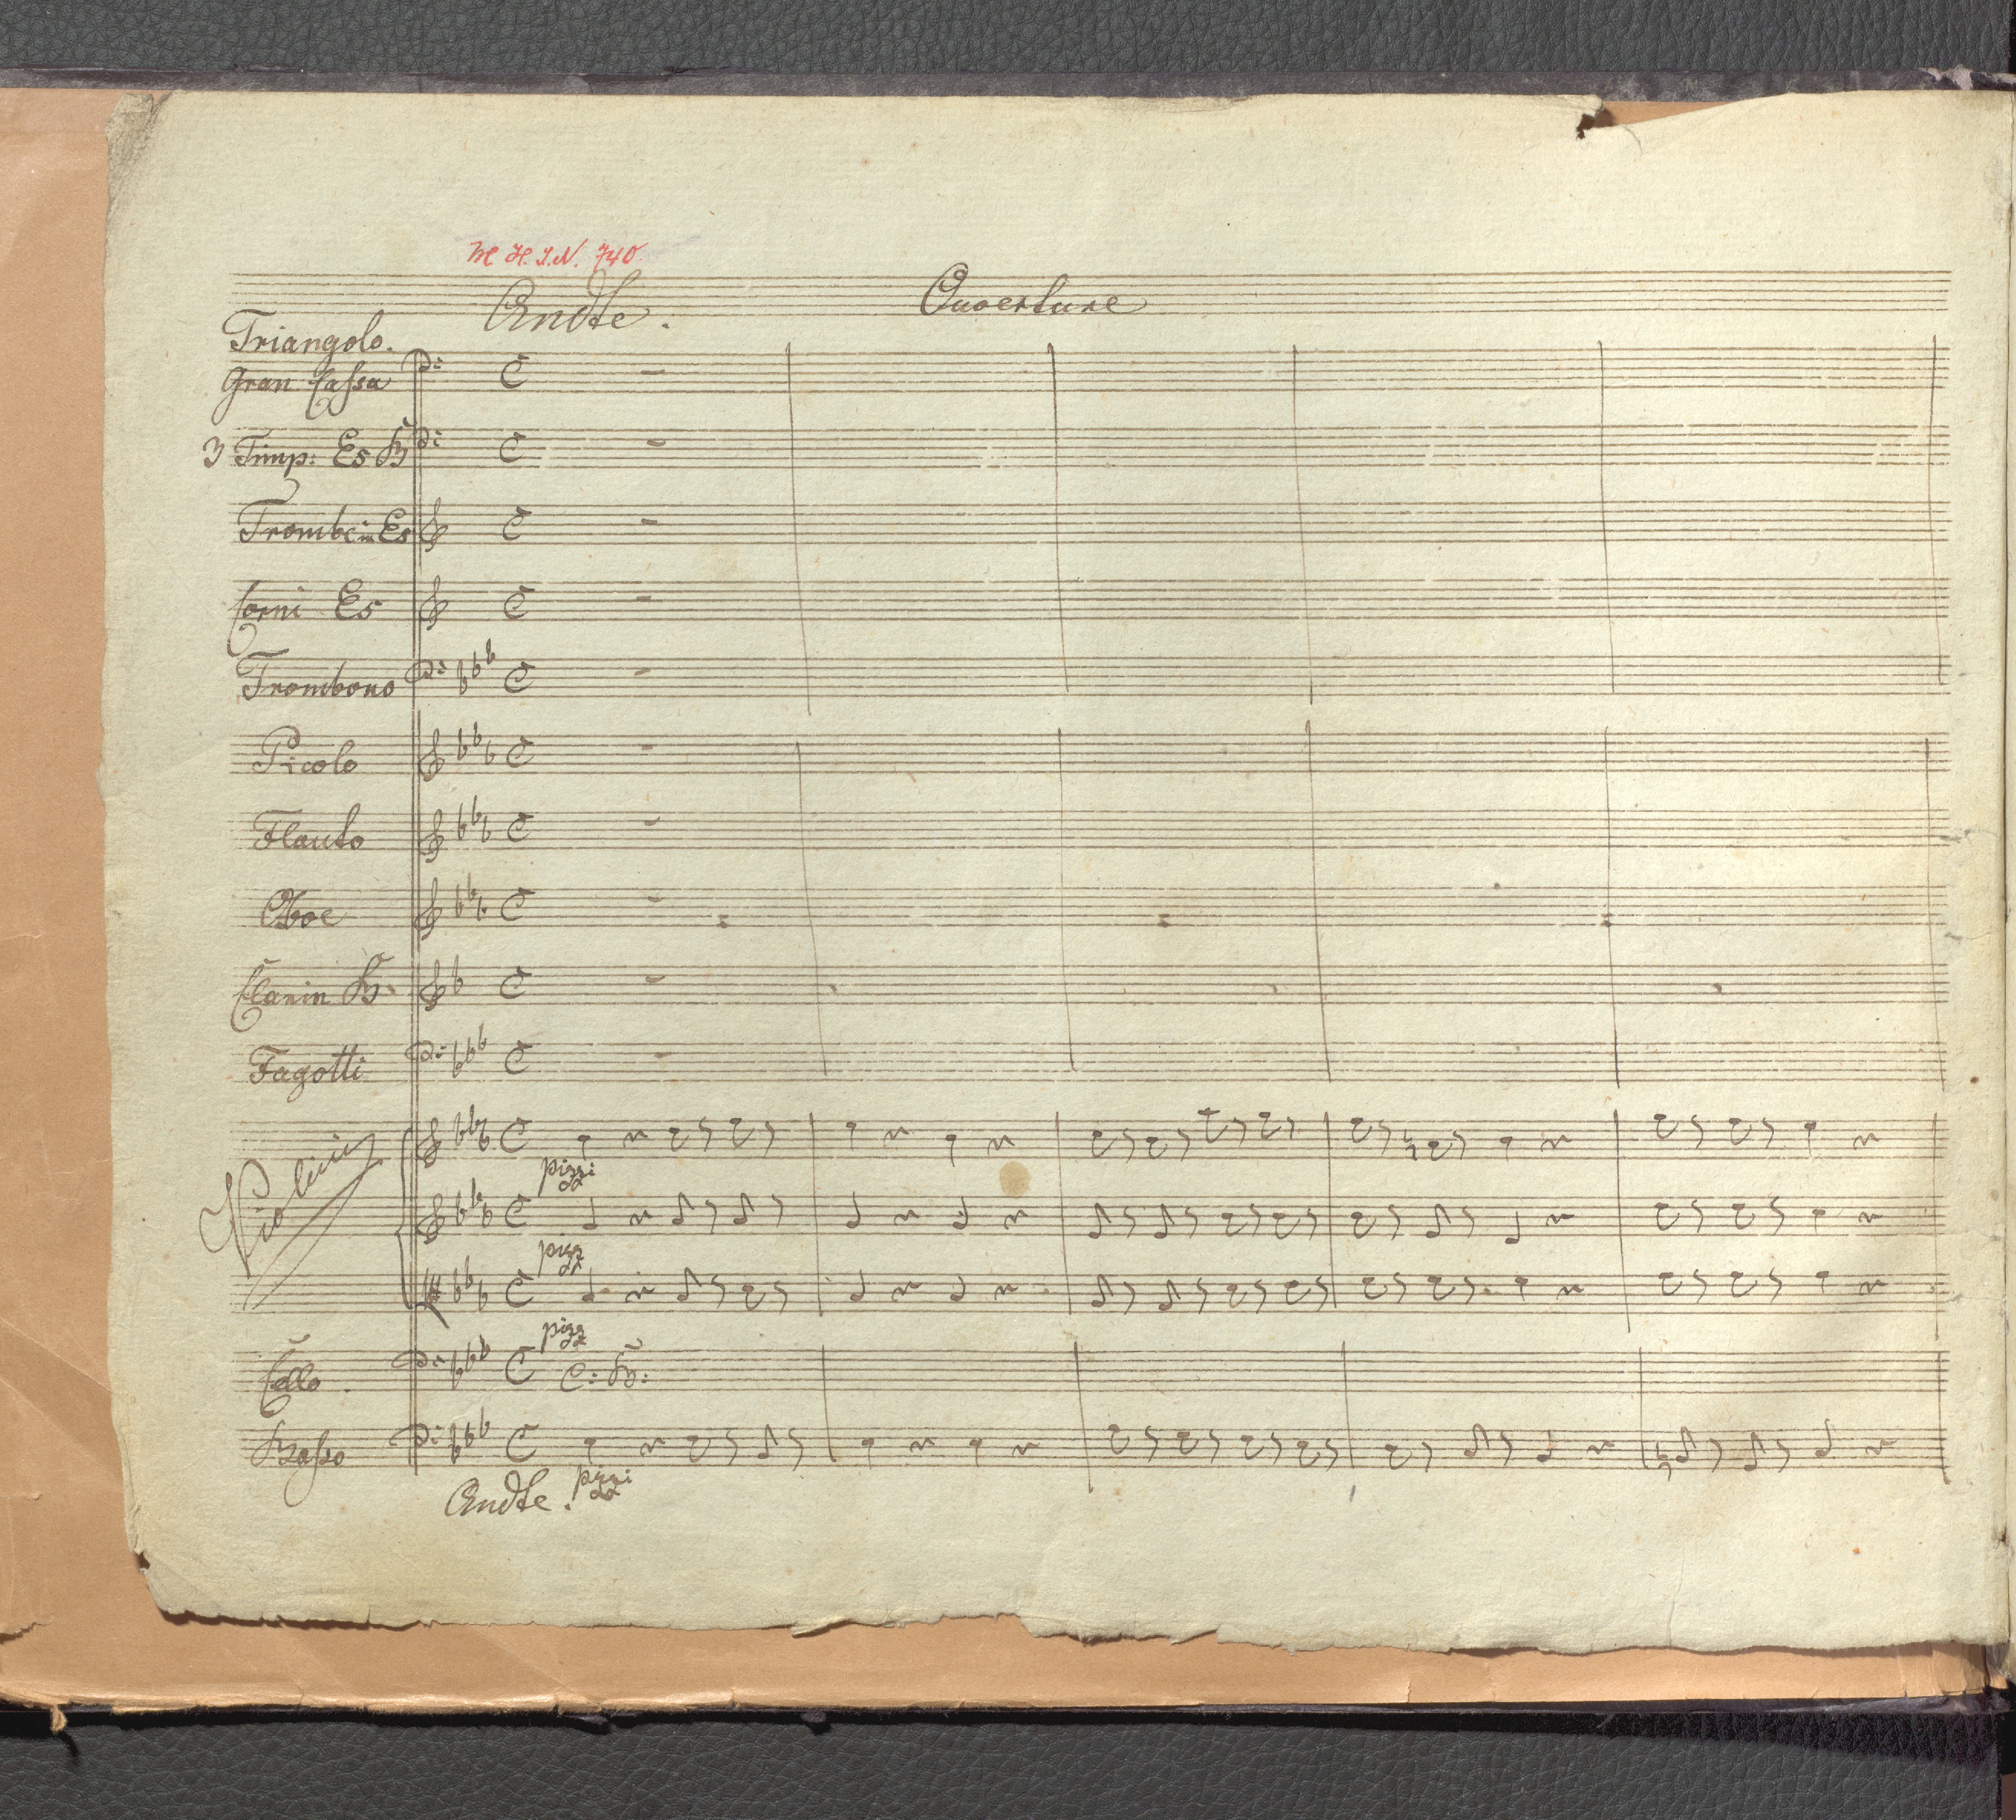 M H. I. N. 740
Andte. Ouverture
Triangolo.
Gran Cassa
3 Timp: Es B
Trombe in Es
Corni Es
Trombono
Picolo
Flauto
Oboe
Clarin B.
Fagotti
Violini
pizzi
pizz
pizz
Cello. C: B:
Basso
Andte. pizzi